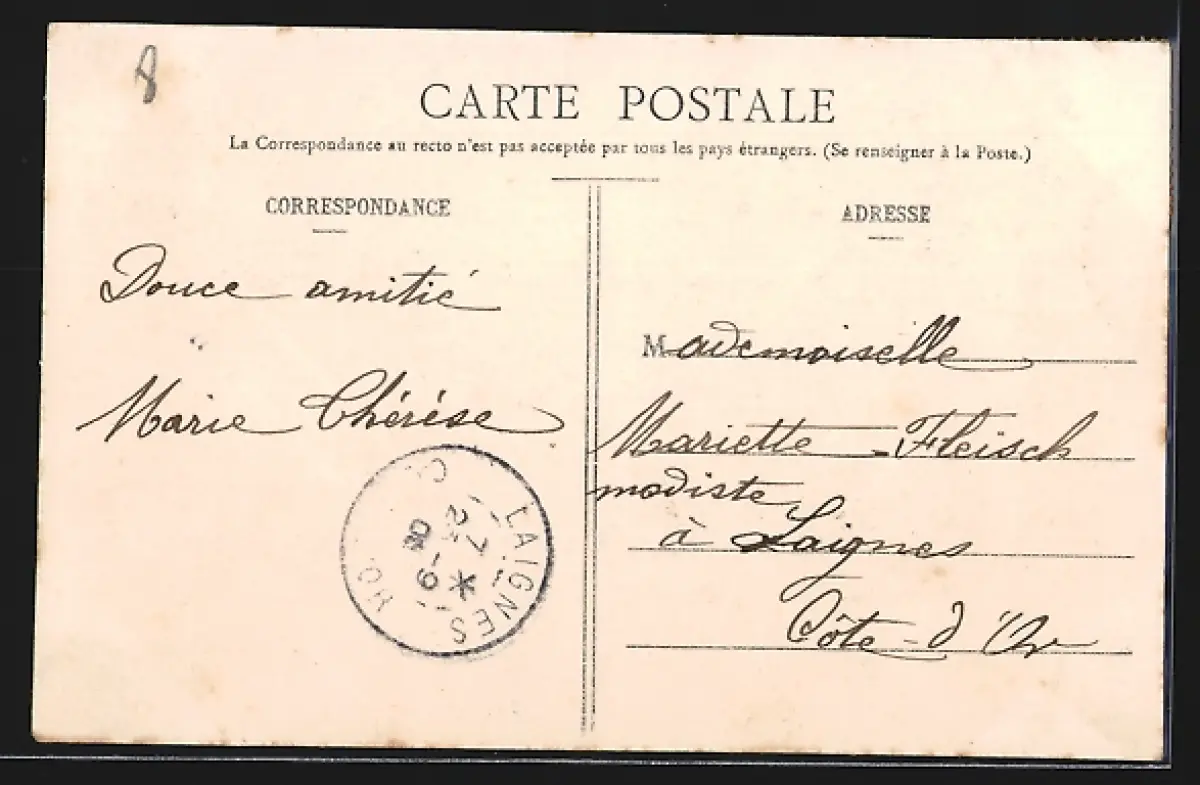 8
CARTE POSTALE
La Correspondance au recto n'est pas acceptée par tous les pays étrangers. (Se renseigner à la Poste.)
CORRESPONDANCE
Douce amitié
Marie Thérèse
ADRESSE
Mademoiselle
Mariette Fleisch
modiste
à Laignes
Côte-d'Or
LAIGNES